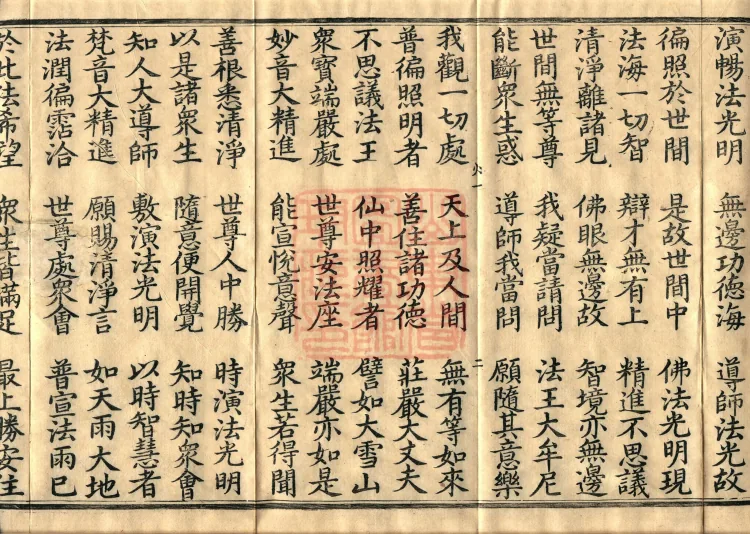 演暢法光明 無邊功德海 導師法光故
徧照於世間 是故世間中 佛法光明現
法海一切智 辯才無有上 精進不思議
清淨離諸見 佛眼無邊故 智境亦無邊
世間無等尊 我疑當請問 法王大牟尼
能斷衆生惑 導師我當問 願隨其意樂
我觀一切處 天上及人間 無有等如來
普徧照明者 善住諸功德 莊嚴大丈夫
不思議法王 仙中照耀者 譬如大雪山
衆寶端嚴處 世尊安法座 端嚴亦如是
妙音大精進 能宣悅意聲 衆生若得聞
善根悉清淨 世尊人中勝 時演法光明
以是諸衆生 隨意便開覺 知時知衆會
知人大導師 敷演法光明 以時智慧者
梵音大精進 願賜清淨言 如天雨大地
法潤徧霑洽 世尊處衆會 普宣法雨已
於此法希望 衆生皆滿足 最上勝安住